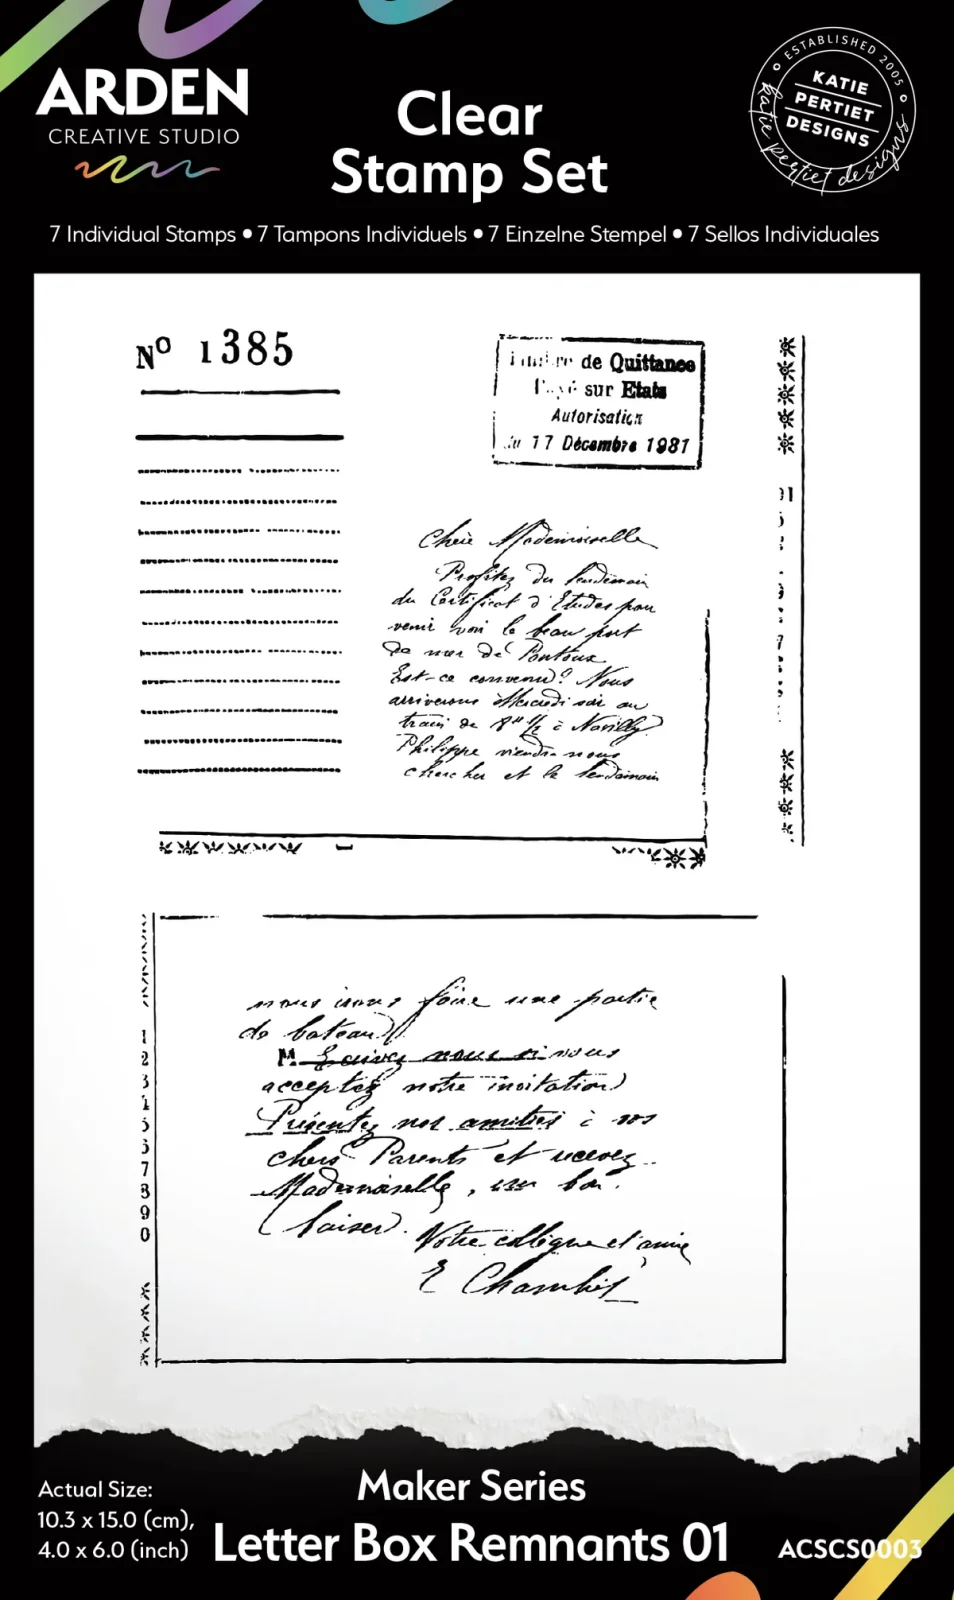 ARDEN
CREATIVE STUDIO
Clear
Stamp Set
ESTABLISHED 2005
KATIE
PERTIET
DESIGNS
katie pertiet designs
7 Individual Stamps • 7 Tampons Individuels • 7 Einzelne Stempel • 7 Sellos Individuales
Nº 1385
de Quittance
sur Etats
Autorisation
17 Décembre 1981
Chère Mademoiselle
Profitez du lendemain
du Certificat d'Etudes pour
venir voir le beau port
de mer de Pontoux
Est-ce convenu? Nous
arriverons Mercredi soir au
train de à Navilly
Philippe viendra nous
chercher et le lendemain
nous irons faire une partie
de bateau
M. nous si vous
acceptez notre invitation
Présentez nos amitiés à vos
chers Parents et recevez
Mademoiselle, un bon
baiser. Votre collègue et amie
E Chambet
1
2
3
1
5
5
7
8
9
0
Actual Size:
10.3 x 15.0 (cm),
4.0 x 6.0 (inch)
Maker Series
Letter Box Remnants 01
ACSCS0003